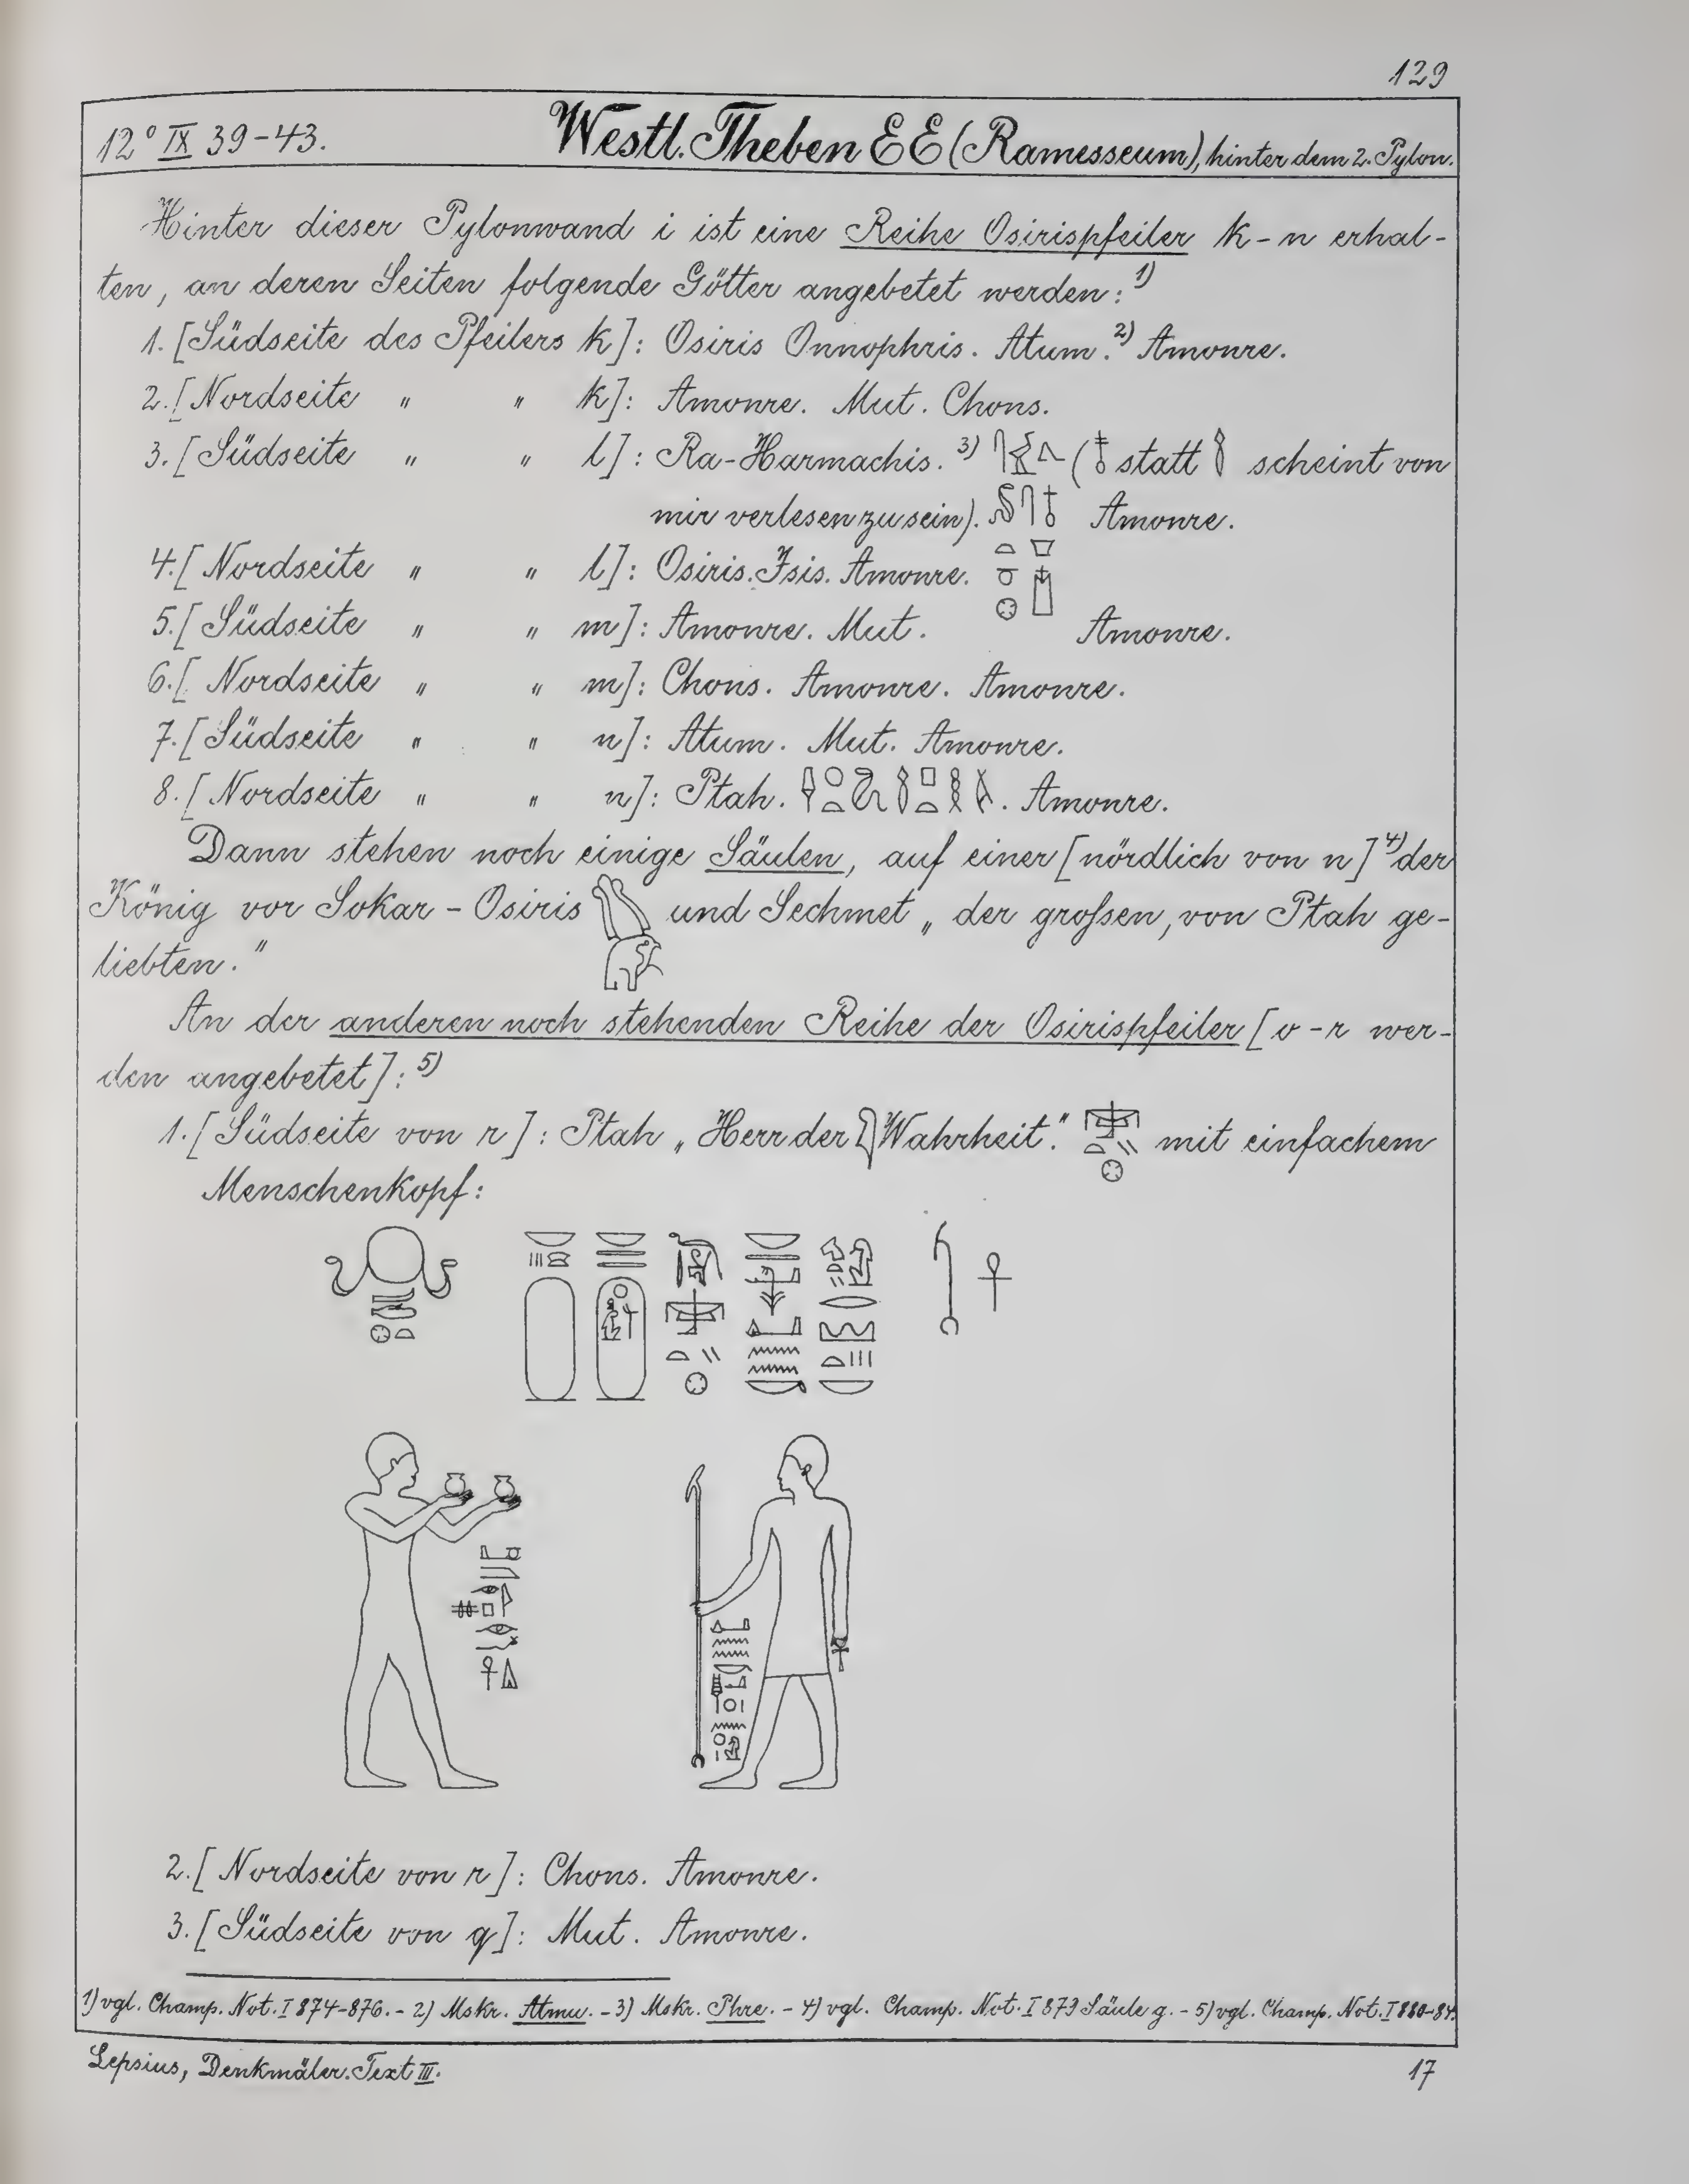 129
12° IX 39-43. Westl. Theben EE (Ramesseum), hinter dem 2. Pylon.
Hinter dieser Pylonwand i ist eine Reihe Osirispfeiler k-n erhal-
ten, an deren Seiten folgende Götter angebetet werden: 1)
1. [Südseite des Pfeilers k]: Osiris Onnophris. Atum. 2) Amonre.
2. [Nordseite " " k]: Amonre. Mut. Chons.
3. [Südseite " " l]: Ra-Harmachis. 3) ( statt scheint von
mir verlesen zu sein). Amonre.
4. [Nordseite " " l]: Osiris. Isis. Amonre.
5. [Südseite " " m]: Amonre. Mut. Amonre.
6. [Nordseite " " m]: Chons. Amonre. Amonre.
7. [Südseite " " n]: Atum. Mut. Amonre.
8. [Nordseite " " n]: Ptah. Amonre.
Dann stehen noch einige Säulen, auf einer [nördlich von n] 4) der
König vor Sokar-Osiris und Sechmet „der großen, von Ptah ge-
liebten."
An der anderen noch stehenden Reihe der Osirispfeiler [o-r wer-
den angebetet]: 5)
1. [Südseite von r]: Ptah „Herr der Wahrheit." mit einfachem
Menschenkopf:
2. [Nordseite von r]: Chons. Amonre.
3. [Südseite von q]: Mut. Amonre.
1) vgl. Champ. Not. I 874-876. - 2) Mskr. Atmu. - 3) Mskr. Phre. - 4) vgl. Champ. Not. I 879 Säule g. - 5) vgl. Champ. Not. I 880-84.
Lepsius, Denkmäler. Text III. 17